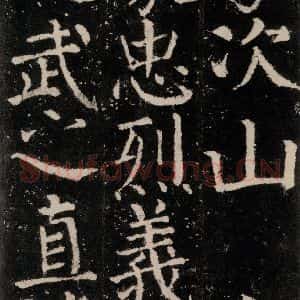 次山
忠烈義
武直
Shufawang.CN